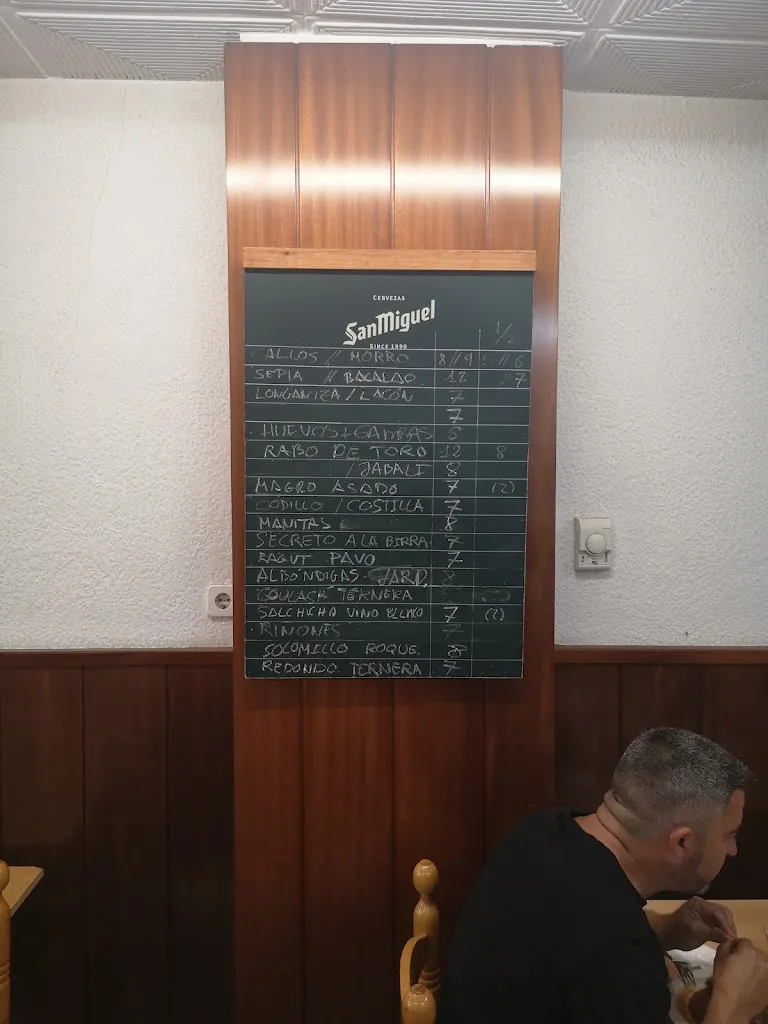 CERVEZAS
San Miguel
SINCE 1890
1/2
CALLOS // MORRO 8//9 5//6
SEPIA // BACALAO 12 //7
LONGANIZA / LACÓN 7
7
HUEVOS+GAMBAS 5
RABO DE TORO 12 8
/JABALI 8
MAGRO ASADO 7 (2)
CODILLO / COSTILLA 7
MANITAS 8
SECRETO A LA BIRRA 7
RAGUT PAVO 7
ALBÓNDIGAS JARD. 8
GOULACH TERNERA
SALCHICHA VINO BLANCO 7 (2)
RIÑONES 7
SOLOMILLO ROQUE.
REDONDO TERNERA 7